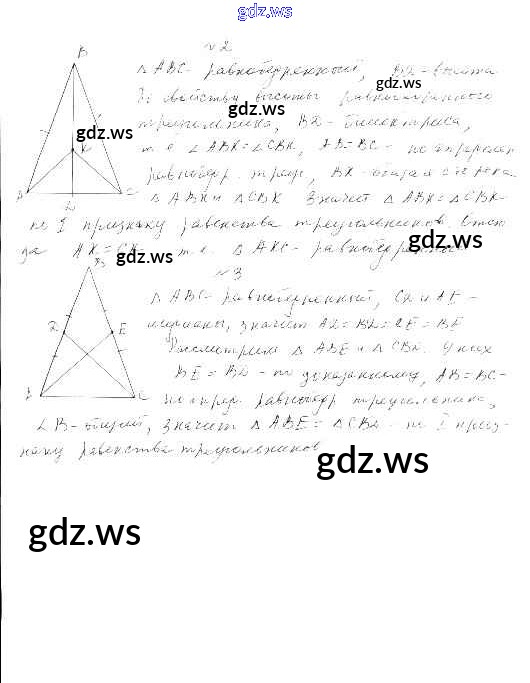 gdz.ws
N 2
B
△ ABC - равнобедренный, BD - высота
gdz.ws
По свойству высоты равнобедренного
треугольника, BD - биссектриса,
gdz.ws
K
т.е. ∠ABK = ∠CBK, AB = BC - по определен
равнобедр. треуг, BK - общая сторона.
A D C
△ ABK и △ CBK Значит △ ABK = △ CBK
по I признаку равенства треугольников. Отсю
gdz.ws
да AK = CK т.е. △ AKC - равнобедренный
gdz.ws
B
N 3
△ ABC - равнобедренный, CD и AE -
медианы, значит AD = BD = CE = BE
D E
Рассмотрим △ ABE и △ CBD. У них
BE = BD - по доказанному, AB = BC -
A C
по опр. равнобедр треугольника,
∠ B - общий, значит △ ABE = △ CBD - по I приз-
наку равенства треугольников
gdz.ws
gdz.ws